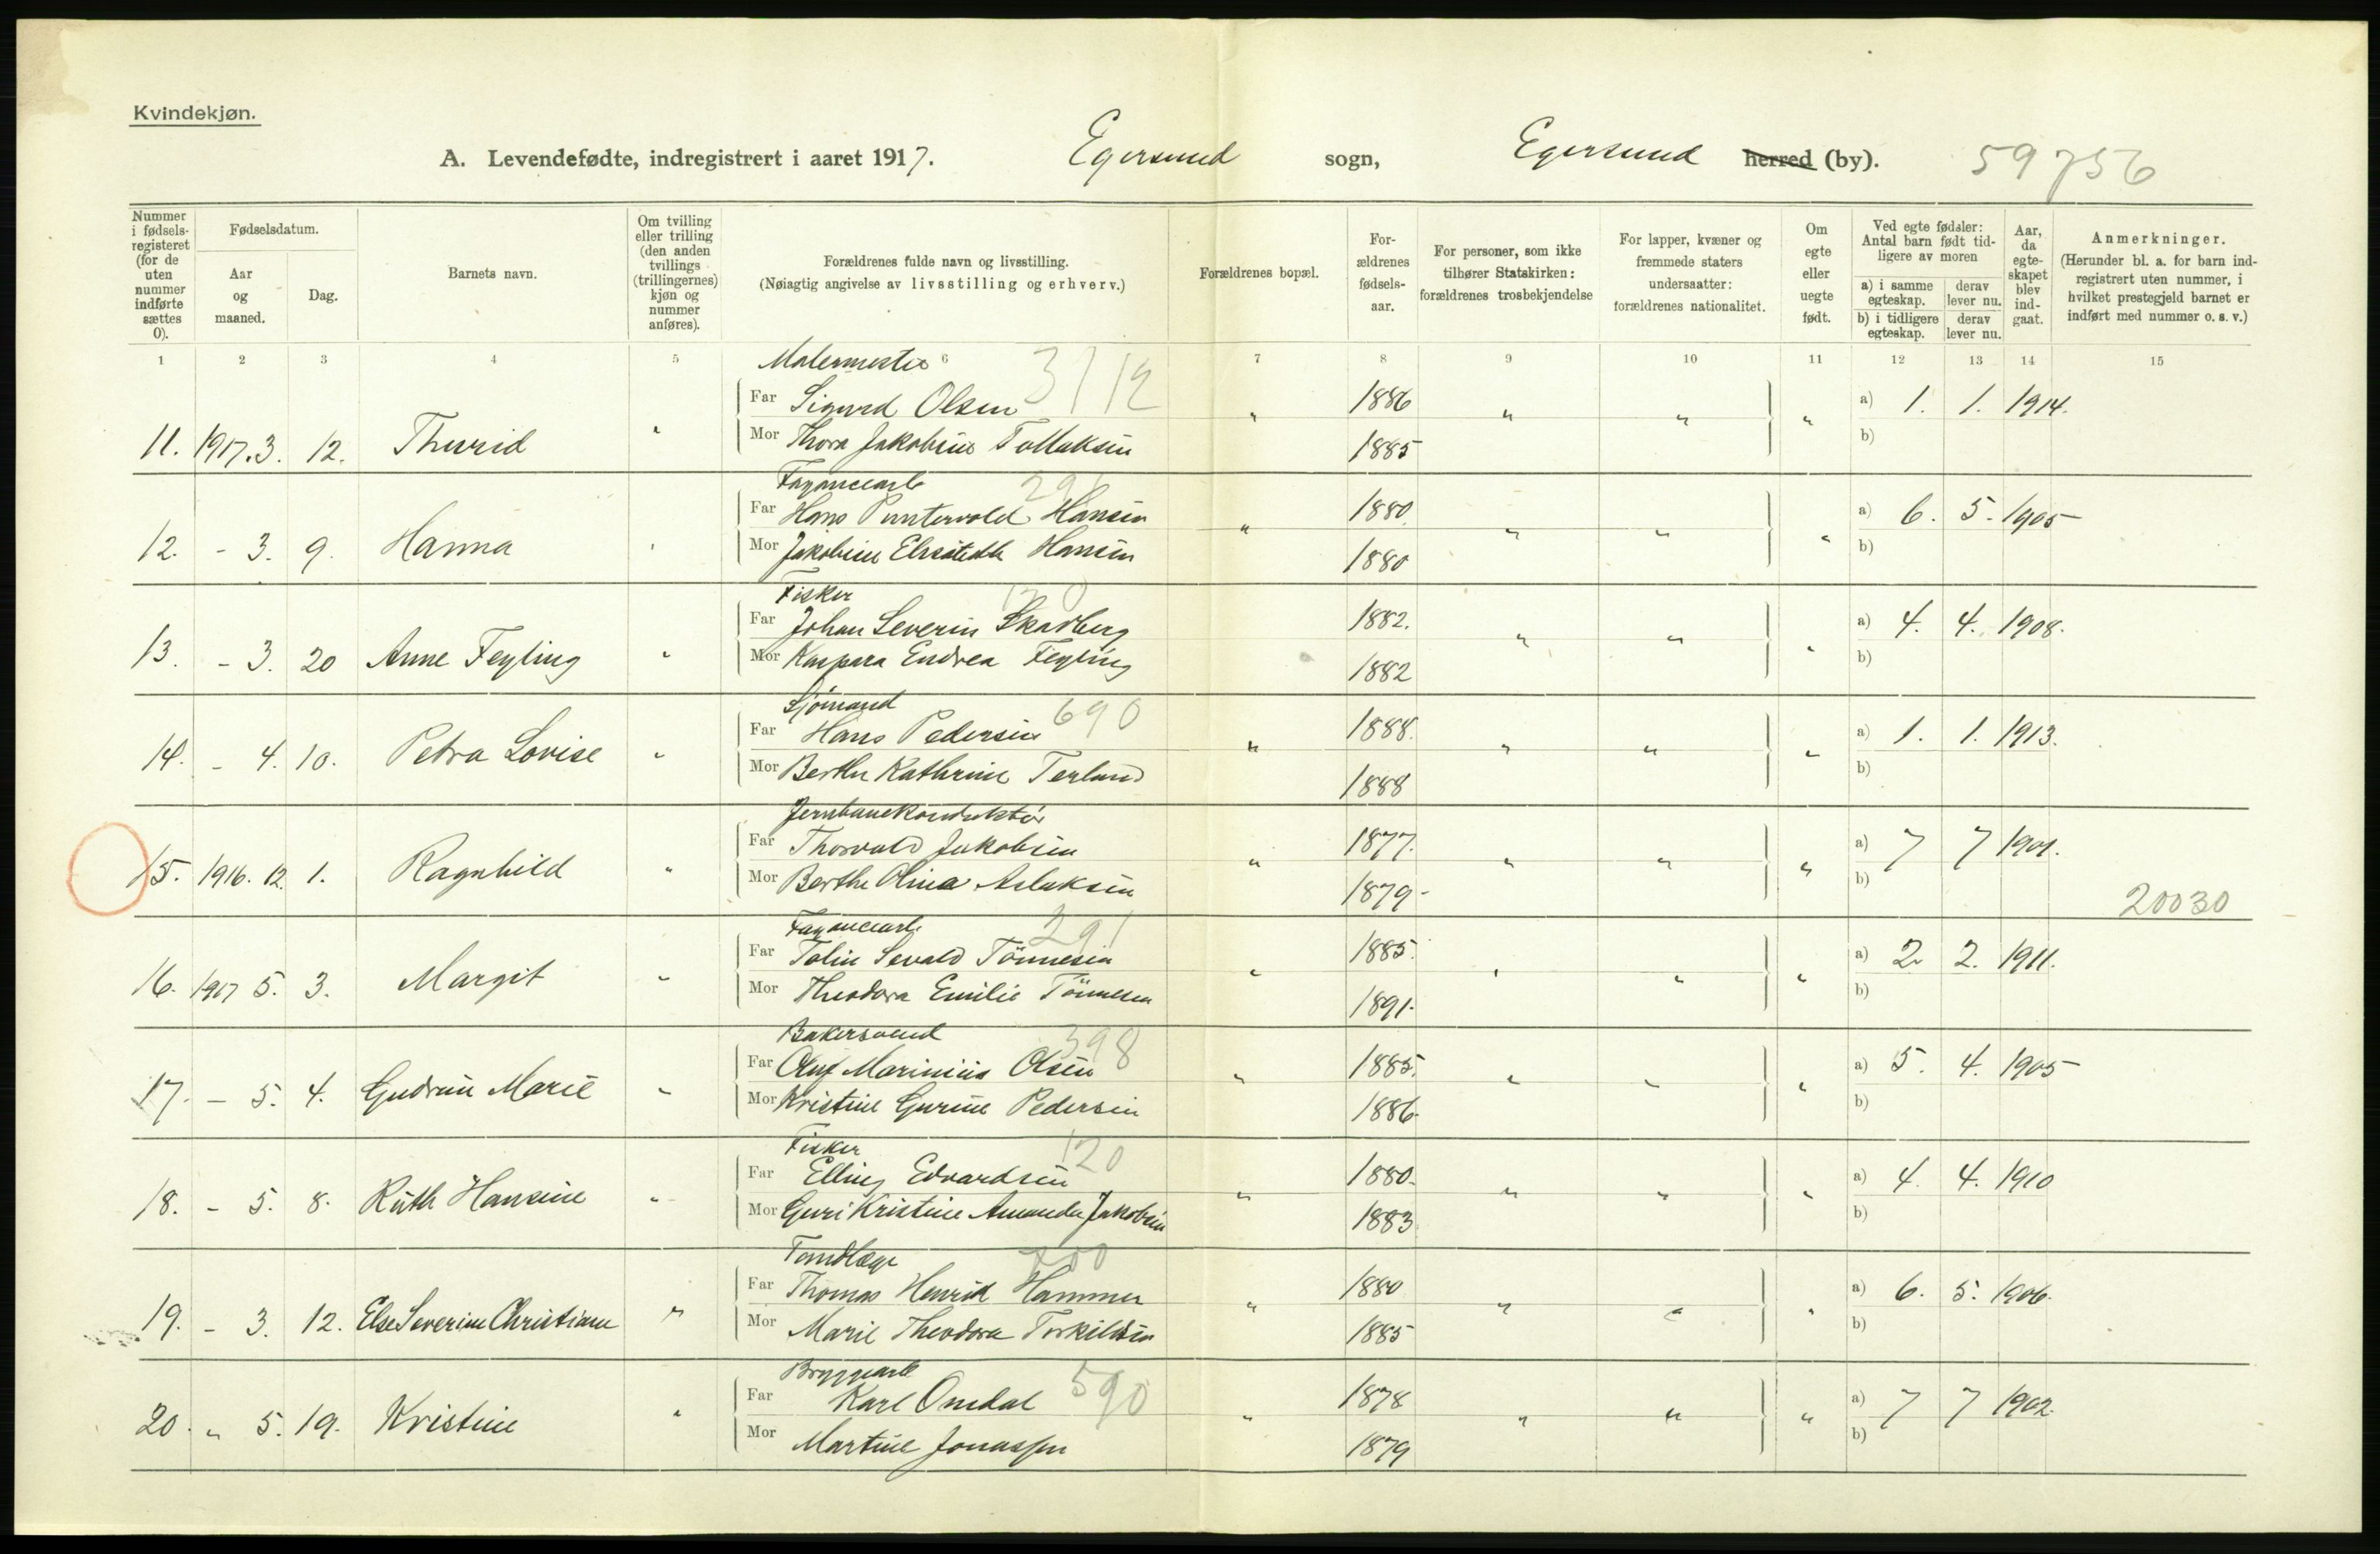 Kvindekjøn.
A. Levendefødte, indregistrert i aaret 1917. Egersund sogn, Egersund herred (by). 59756
Nummer i fødselsregisteret (for de uten nummer indførte sættes 0).
Fødselsdatum.
Aar og maaned.
Dag.
Barnets navn.
Om tvilling eller trilling (den anden tvillings (trillingernes) kjøn og nummer anføres).
Forældrenes fulde navn og livsstilling.
(Nøiagtig angivelse av livsstilling og erhverv.)
Forældrenes bopæl.
Forældrenes fødselsaar.
For personer, som ikke tilhører Statskirken: forældrenes trosbekjendelse
For lapper, kvæner og fremmede staters undersaatter: forældrenes nationalitet.
Om egte eller uegte født.
Ved egte fødsler: Antal barn født tidligere av moren
a) i samme egteskap. derav lever nu.
b) i tidligere egteskap. derav lever nu.
Aar, da egteskapet blev indgaat.
Anmerkninger.
(Herunder bl. a. for barn indregistrert uten nummer, i hvilket prestegjeld barnet er indført med nummer o. s. v.)
1 2 3 4 5 6 7 8 9 10 11 12 13 14 15
Malermester 3112
Far Sigurd Olsen " 1886 " " " a) 1. 1. 1914.
11. 1917. 3. 12. Thurid " Mor Thora Jakobine Tollaksen 1885 b)
Fayancearb 291
Far Hans Puntervold Hansen " 1880 " " " a) 6. 5. 1905
12. - 3. 9. Hanna " Mor Jakobine Elisabeth Hansen 1880 b)
Fisker 120
Far Johan Severin Skarberg 1882. " " " a) 4. 4. 1908.
13. - 3. 20 Anne Feyling " Mor Kaspara Endrea Feyling 1882 b)
Sjömand 690
Far Hans Pedersen " 1888. " " " a) 1. 1. 1913.
14. - 4. 10. Petra Lovise " Mor Berthe Kathrine Terland 1888 b)
Jernbanekonduktör
Far Thorvald Jakobsen " 1877. " " " a) 7 7 1901.
15. 1916. 12. 1. Ragnhild " Mor Berthe Olina Aslaksen 1879- b) 20030
Fayancearb. 291
Far Tolin Sevald Tönnesen " 1885. " " " a) 2. 2. 1911.
16. 1917 5. 3. Margit " Mor Theodora Emilie Tönnesen 1891. b)
Bakersvend 398
Far Oluf Marinius Olsen " 1885. " " " a) 5. 4. 1905
17. - 5. 4. Gudrun Marie " Mor Kristine Gurine Pedersen 1886. b)
Fisker 120
Far Elling Edvardsen " 1880. " " " a) 4. 4. 1910
18. - 5. 8. Ruth Hansine " Mor Guri Kristine Amanda Jakobsen 1883 b)
Tandlæge
Far Thomas Henrid Hammer " 1880 " " " a) 6. 5. 1906.
19. - 3. 12. Else Severine Christiane " Mor Marie Theodora Torkildsen 1885 b)
Bryggearb 590
Far Karl Omdal " 1878 " " " a) 7 7 1902.
20. " 5. 19. Kristine " Mor Martine Jonassen 1879 b)